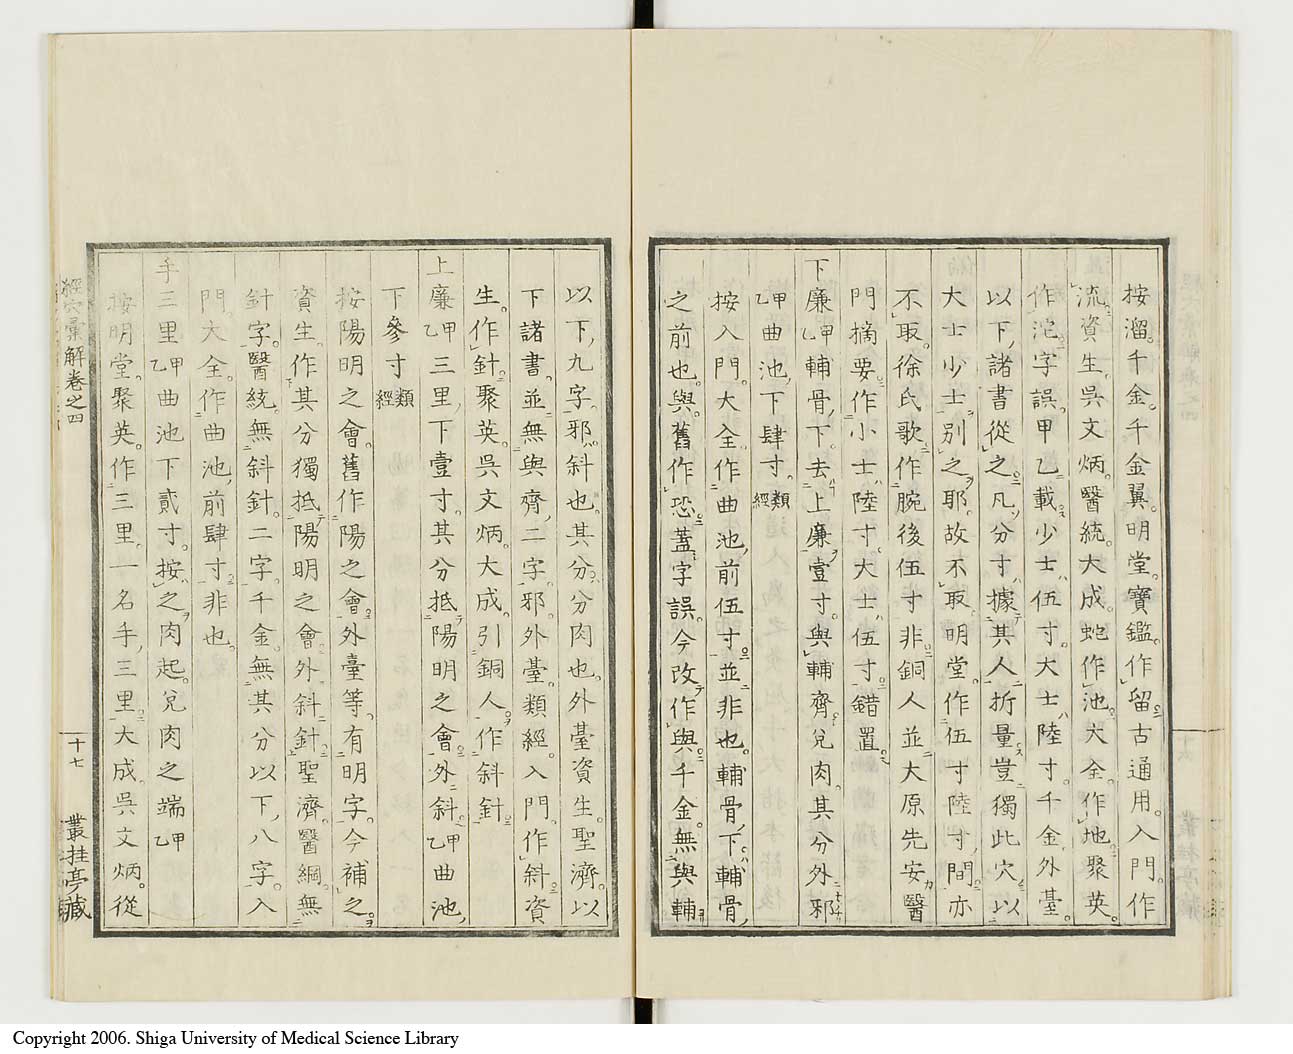 按溜。千金。千金翼。明堂。寶鑑。作留。古通用。入門。作
流。資生。吳文炳。醫統。大成。蛇作池。大全。作地。聚英。
作沱。字誤。甲乙載少士伍寸。大士陸寸。千金。外臺。
以下。諸書從之。凡分寸據其人折量。豈獨此穴以
大士少士別之耶。故不取。明堂。作伍寸陸寸間。亦
不取。徐氏歌。作腕後伍寸非。銅人並大原先安。醫
門摘要。作小士陸寸。大士伍寸。錯置。
下廉甲乙輔骨下。去上廉壹寸。與輔齊。兌肉。其分外邪
甲乙曲池下肆寸。類經
按入門。大全。作曲池前伍寸。並非也。輔骨下。輔骨
之前也。與。舊作恐。蓋字誤。今改作與。千金。無與輔
以下九字。邪。斜也。其分。分肉也。外臺。資生。聖濟。以
下諸書。並無與齊二字。邪。外臺。類經。入門。作斜。資
生。作針。聚英。吳文炳。大成。引銅人。作斜針。
上廉甲乙三里下壹寸。其分抵陽明之會外斜。甲乙曲池
下參寸類經
按陽明之會。舊作陽之會。外臺等。有明字。今補之。
資生。作其分獨抵陽明之會外斜針。聖濟。醫綱。無
針字。醫統。無斜針二字。千金。無其分以下八字。入
門。大全。作曲池前肆寸。非也。
手三里甲乙曲池下貳寸。按之肉起。兌肉之端甲乙
按明堂。聚英。作三里。一名手三里。大成。吳文炳。從
經穴彙解卷之四
十七
叢桂亭藏
Copyright 2006. Shiga University of Medical Science Library